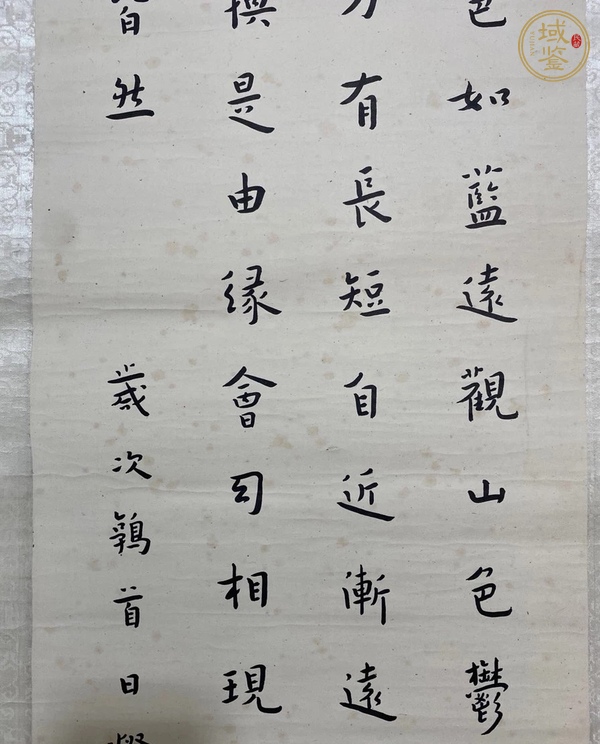 色如藍遠觀山色鬱
有長短自近漸遠
是由緣會司相現
皆然 歲次鶉首日
域鉴